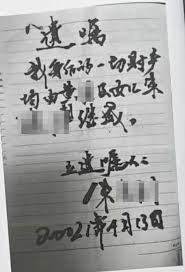 遗嘱
我身后的一切财产
均由曹 民女儿束
继承。
立遗嘱人
束
2002年4月13日